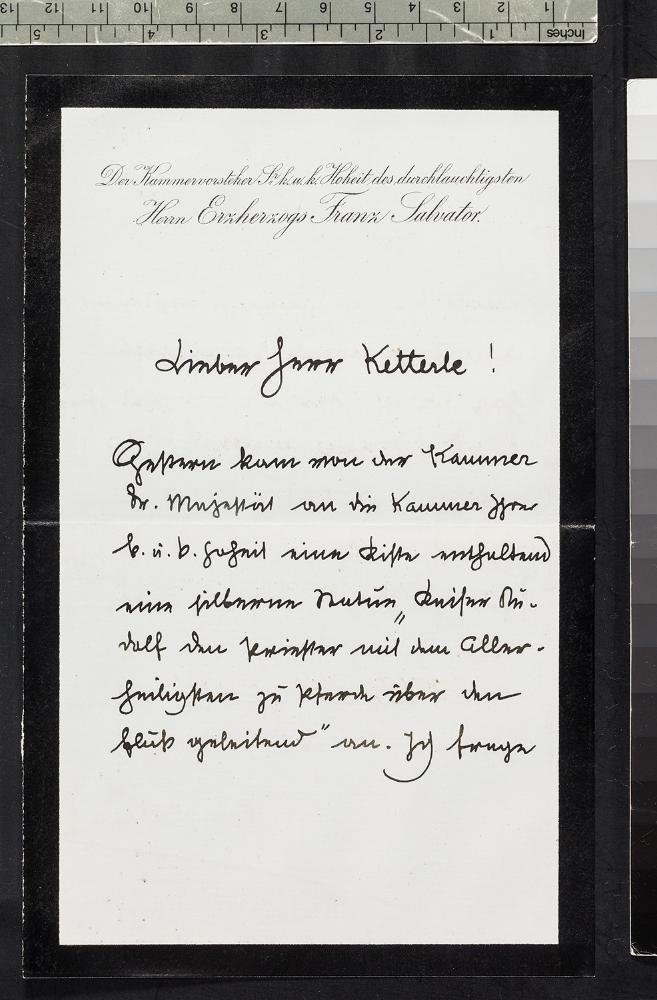 Der Kammervorsteher Sr. k. u. k. Hoheit des durchlauchtigsten
Herrn Erzherzogs Franz Salvator.
Lieber Herr Ketterle !
Gestern kam von der Kammer
Sr. Majestät an die Kammer Ihrer
k. u. k. Hoheit eine Kiste enthaltend
eine silberne Statue „Kaiser Ru-
dolf den Priester mit dem Aller-
heiligsten zu Pferde über den
Fluß geleitend" an. Ich frage